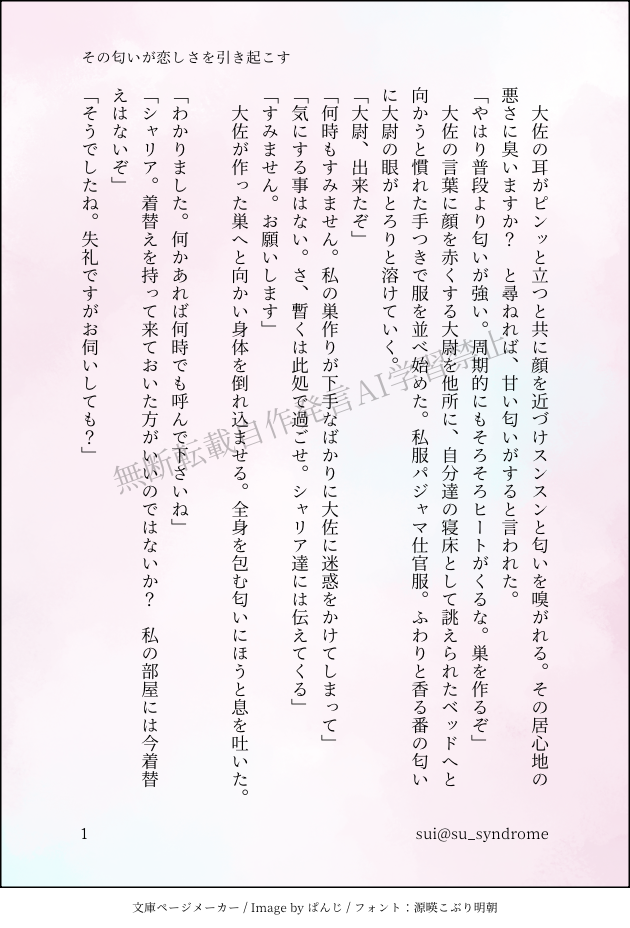 その匂いが恋しさを引き起こす
大佐の耳がピンッと立つと共に顔を近づけスンスンと匂いを嗅がれる。その居心地の
悪さに臭いますか？　と尋ねれば、甘い匂いがすると言われた。
「やはり普段より匂いが強い。周期的にもそろそろヒートがくるな。巣を作るぞ」
大佐の言葉に顔を赤くする大尉を他所に、自分達の寝床として誂えられたベッドへと
向かうと慣れた手つきで服を並べ始めた。私服パジャマ仕官服。ふわりと香る番の匂い
に大尉の眼がとろりと溶けていく。
「大尉、出来たぞ」
「何時もすみません。私の巣作りが下手なばかりに大佐に迷惑をかけてしまって」
「気にする事はない。さ、暫くは此処で過ごせ。シャリア達には伝えてくる」
「すみません。お願いします」
大佐が作った巣へと向かい身体を倒れ込ませる。全身を包む匂いにほうと息を吐いた。
「わかりました。何かあれば何時でも呼んで下さいね」
「シャリア。着替えを持って来ておいた方がいいのではないか？　私の部屋には今着替
えはないぞ」
「そうでしたね。失礼ですがお伺いしても？」
無断転載自作発言AI学習禁止
1
sui@su_syndrome
文庫ページメーカー / Image by ぱんじ / フォント：源暎こぶり明朝